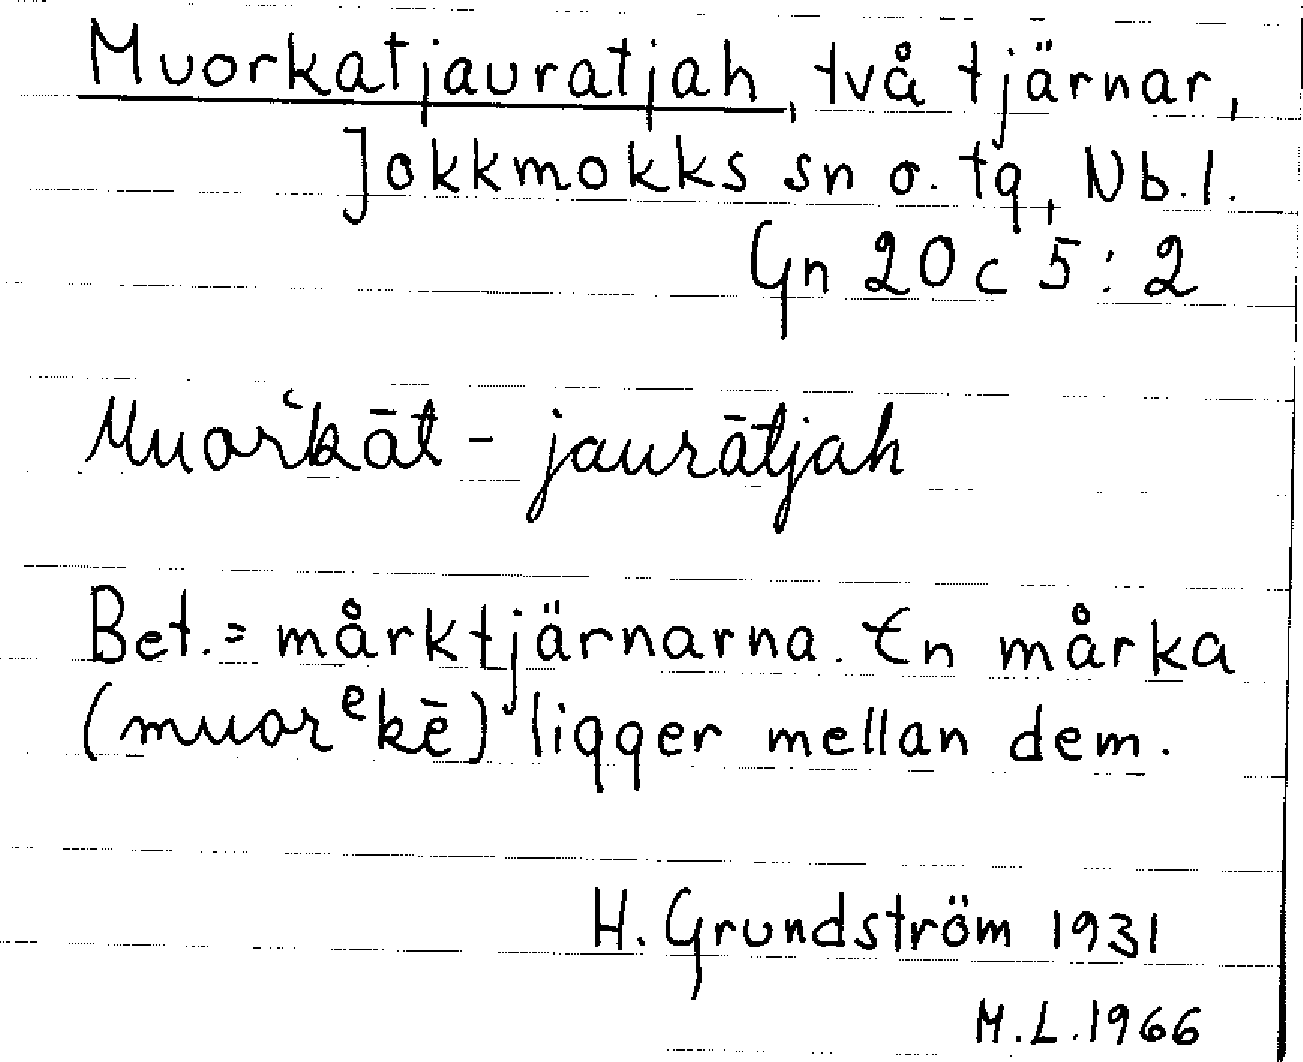 Muorkatjauratjah, två tjärnar,
Jokkmokks sn o. tg, Nb. l.
Gn 20 c 5:2
Muorʿkāt - jaurātjah
Bet. = mårktjärnarna. En mårka
(muorᵉkē) ligger mellan dem.
H. Grundström 1931
M.L. 1966